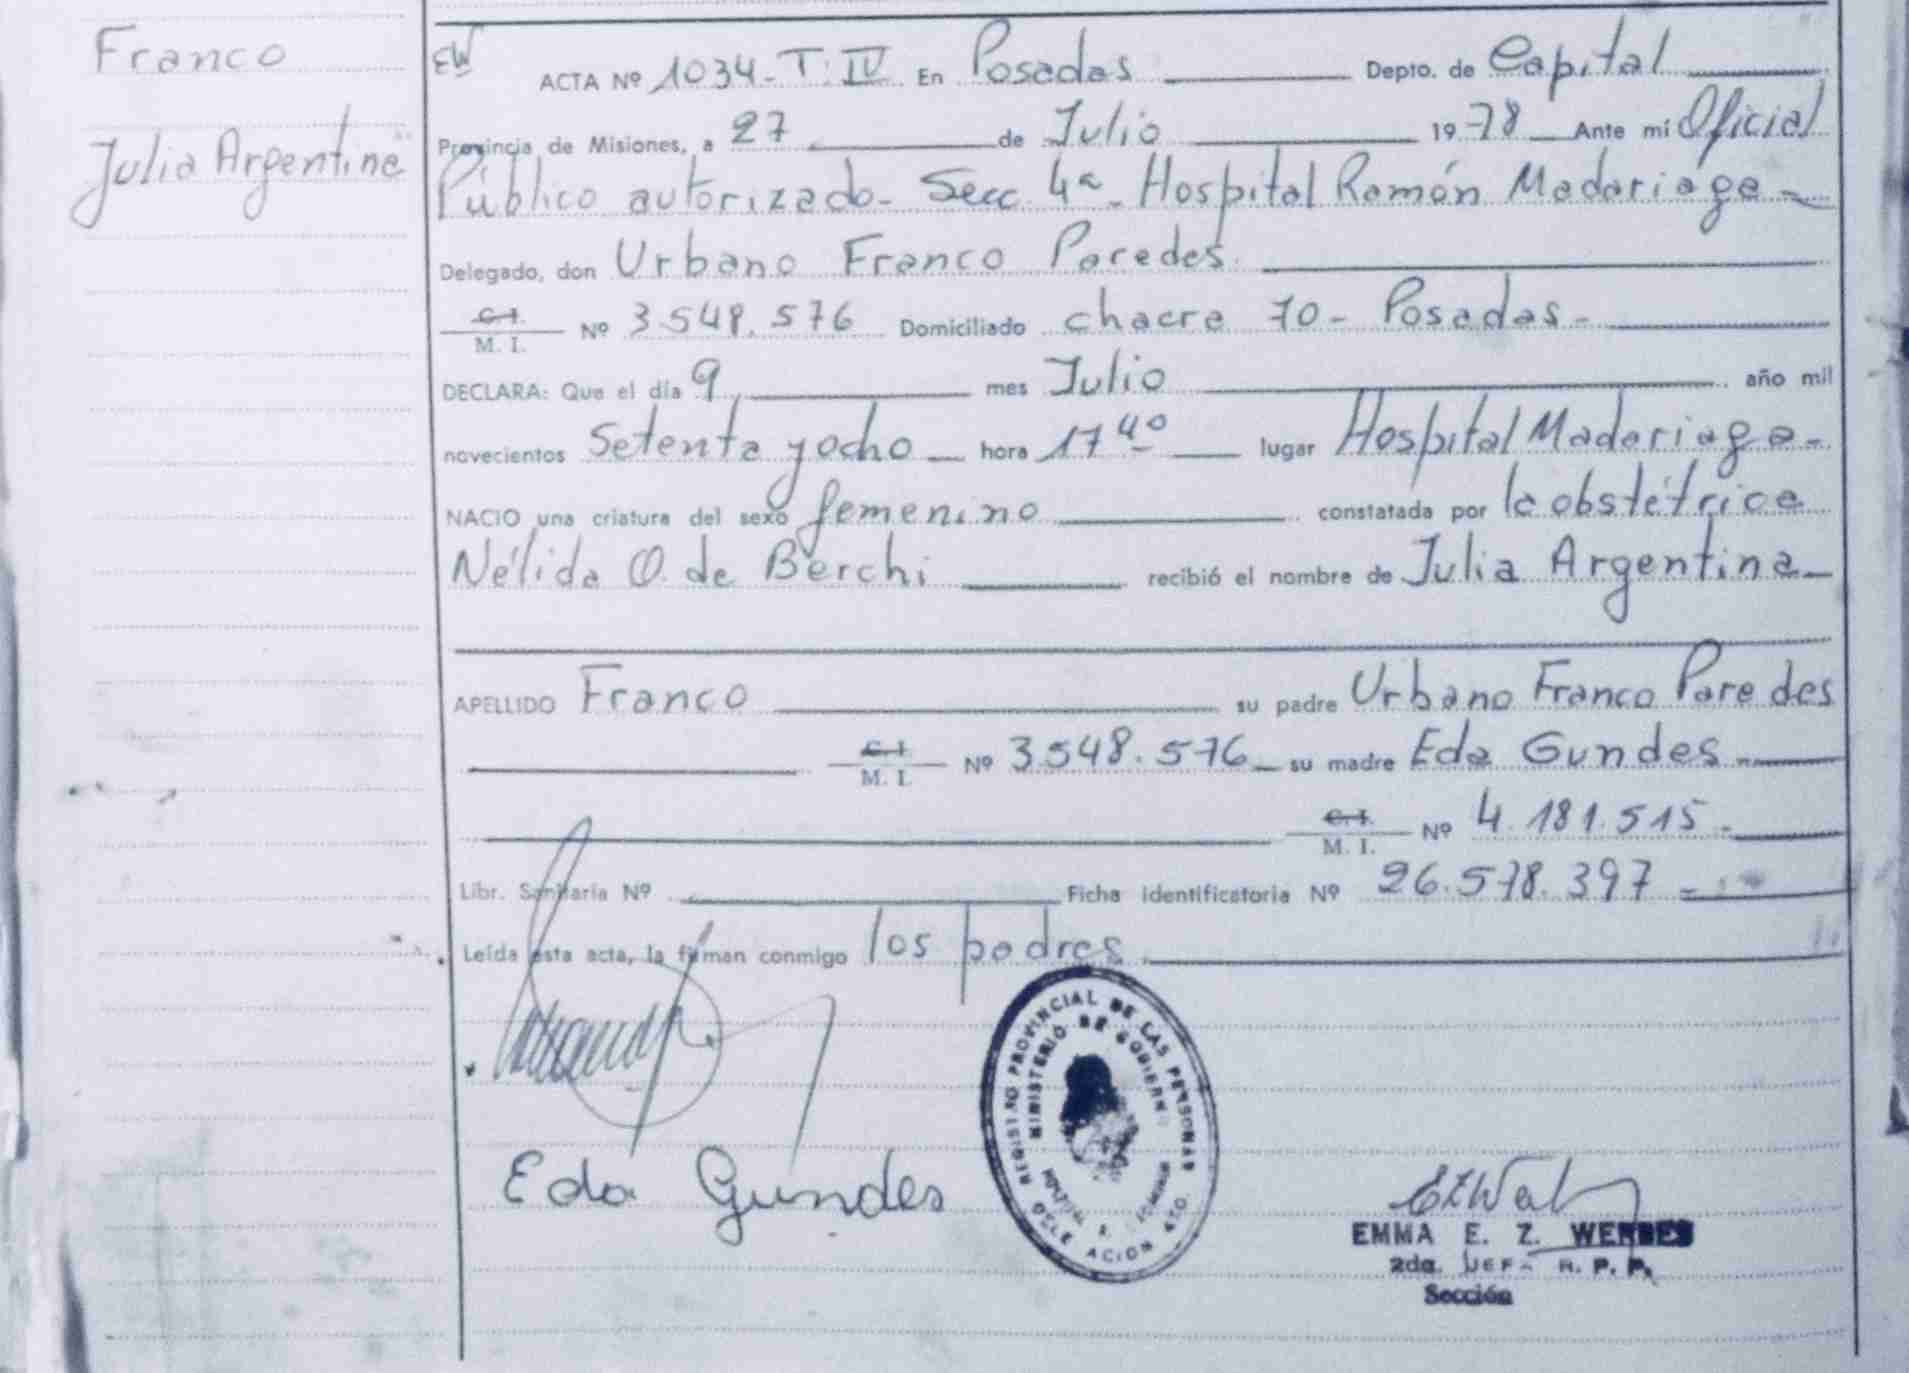 Franco
Julia Argentina
EW
ACTA Nº 1034- T. IV En Posadas Depto. de Capital
Provincia de Misiones, a 27 de Julio 1978 Ante mí Oficial
Público autorizado- Secc. 4ª- Hospital Ramón Madariaga-
Delegado, don Urbano Franco Paredes
C. I.
M. I. Nº 3.548.576 Domiciliado chacra 70- Posadas-
DECLARA: Que el día 9 mes Julio año mil
novecientos Setenta y ocho hora 17 40 lugar Hospital Madariaga-
NACIO una criatura del sexo femenino constatada por la obstétrica
Nélida O. de Berchi recibió el nombre de Julia Argentina
APELLIDO Franco su padre Urbano Franco Paredes
C. I.
M. I. Nº 3.548.576 su madre Eda Gundes
C. I.
M. I. Nº 4.181.515-
Libr. Sanitaria Nº Ficha identificatoria Nº 26.578.397
Leída esta acta, la firman conmigo los padres
REGISTRO PROVINCIAL DE LAS PERSONAS
MINISTERIO DE GOBIERNO
HOSPITAL R.
DELEGACION
Eda Gundes
EMMA E. Z.
2da. JEFA R. P. P.
Sección